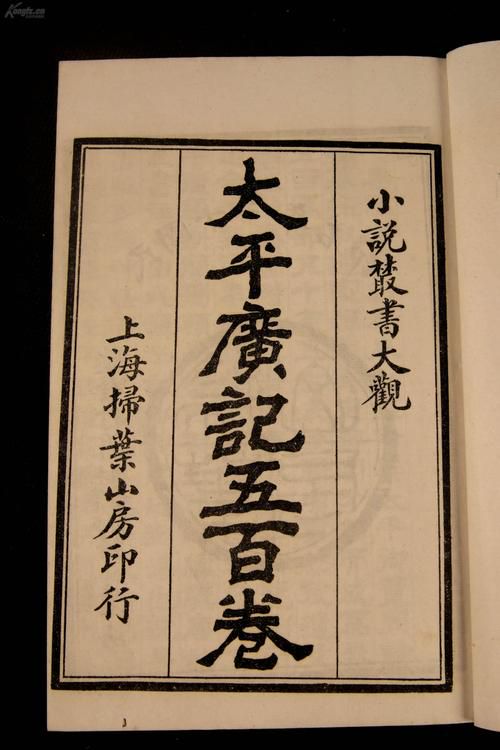 小説叢書大觀
太平廣記五百卷
上海掃葉山房印行
Kongfz.cn